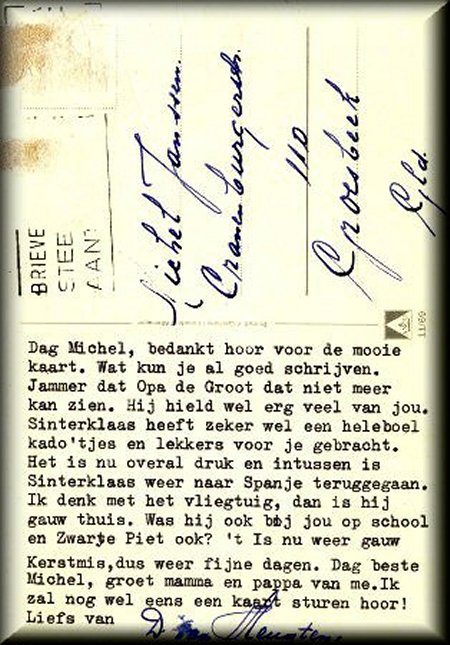 Michel Janssen.
110
Groesbeek
Gld.
BRIEVE
STEE
AAN
11/69
Dag Michel, bedankt hoor voor de mooie
kaart. Wat kun je al goed schrijven.
Jammer dat Opa de Groot dat niet meer
kan zien. Hij hield wel erg veel van jou.
Sinterklaas heeft zeker wel een heleboel
kado'tjes en lekkers voor je gebracht.
Het is nu overal druk en intussen is
Sinterklaas weer naar Spanje teruggegaan.
Ik denk met het vliegtuig, dan is hij
gauw thuis. Was hij ook bij jou op school
en Zwarte Piet ook? 't Is nu weer gauw
Kerstmis,dus weer fijne dagen. Dag beste
Michel, groet mamma en pappa van me.Ik
zal nog wel eens een kaart sturen hoor!
Liefs van D. van